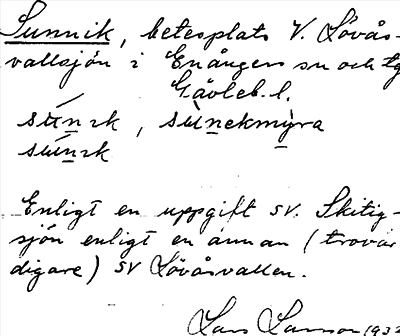 Sunnik, betesplats V. Lövås-
vallsjön i Enångers sn och tg
Gävleb. l.
sún̲ık, sùn̲ekmy̲ra
sún̲ık
Enligt en uppgift sv. Skitig-
sjön enligt en annan (trovär
digare) SV Lövåsvallen.
Lars Larsson 1932